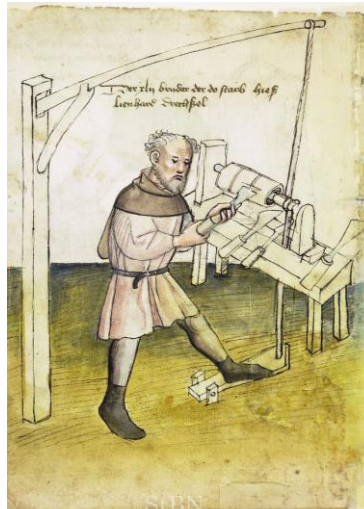 Der xlij bruder der do starb hieß
lienhard drechßel
StBN